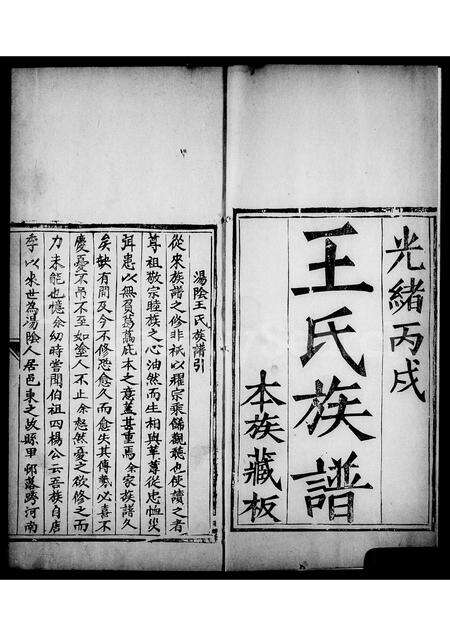 光緒丙戌
王氏族譜
本族藏板
湯陰王氏族譜引
從來族譜之修非祇以耀宗乘餙觀聽也使讀之者
尊祖敬宗睦族之心油然而生相與革薄從忠恤災
弭患以無貿葛藟庇本之意蓋甚重焉余家族譜久
矣缺有間及今不修恐愈久而愈失其傳勢必喜不
慶憂不吊不至如塗人不止余愁然憂之欲修之而
力未能也憶余幼時嘗聞伯祖四楊公云吾族自唐
李以來世為湯陰人居邑東之故縣甲邨落跨河南